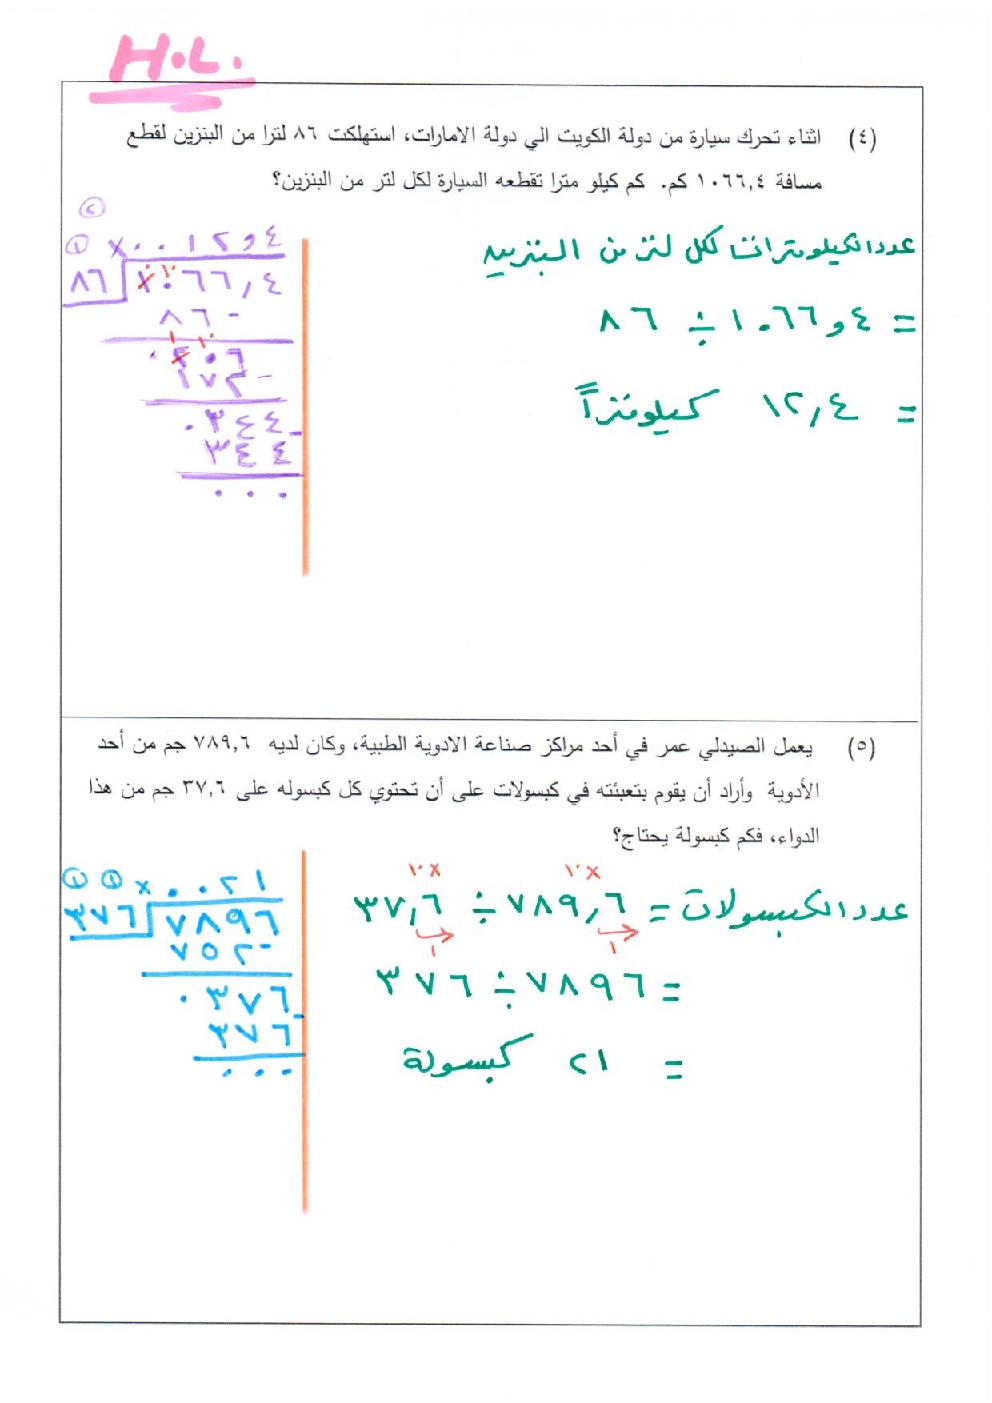 H.L.
(٤) اثناء تحرك سيارة من دولة الكويت الي دولة الامارات، استهلكت ٨٦ لترا من البنزين لقطع
مسافة ١٠٦٦,٤ كم. كم كيلو مترا تقطعه السيارة لكل لتر من البنزين؟
عدد الكيلومترات لكل لتر من البنزين
= ١٠٦٦,٤ ÷ ٨٦
= ١٢,٤ كيلومتراً
٢
١ × ٠٠١٢,٤
٨٦ ١٠٦٦,٤
٠ ١٠
٨٦ -
١ ١٠
٠٢٠٦
١٧٢ -
٠٣٤٤
٣٤٤ -
٠٠٠
(٥) يعمل الصيدلي عمر في أحد مراكز صناعة الادوية الطبية، وكان لديه ٧٨٩,٦ جم من أحد
الأدوية وأراد أن يقوم بتعبئته في كبسولات على أن تحتوي كل كبسوله على ٣٧,٦ جم من هذا
الدواء، فكم كبسولة يحتاج؟
١٠× ١٠×
عدد الكبسولات = ٧٨٩,٦ ÷ ٣٧,٦
١ ١
= ٧٨٩٦ ÷ ٣٧٦
= ٢١ كبسولة
١ ١ × ٠٠٢١
٣٧٦ ٧٨٩٦
٧٥٢ -
٠٣٧٦
٣٧٦ -
٠٠٠